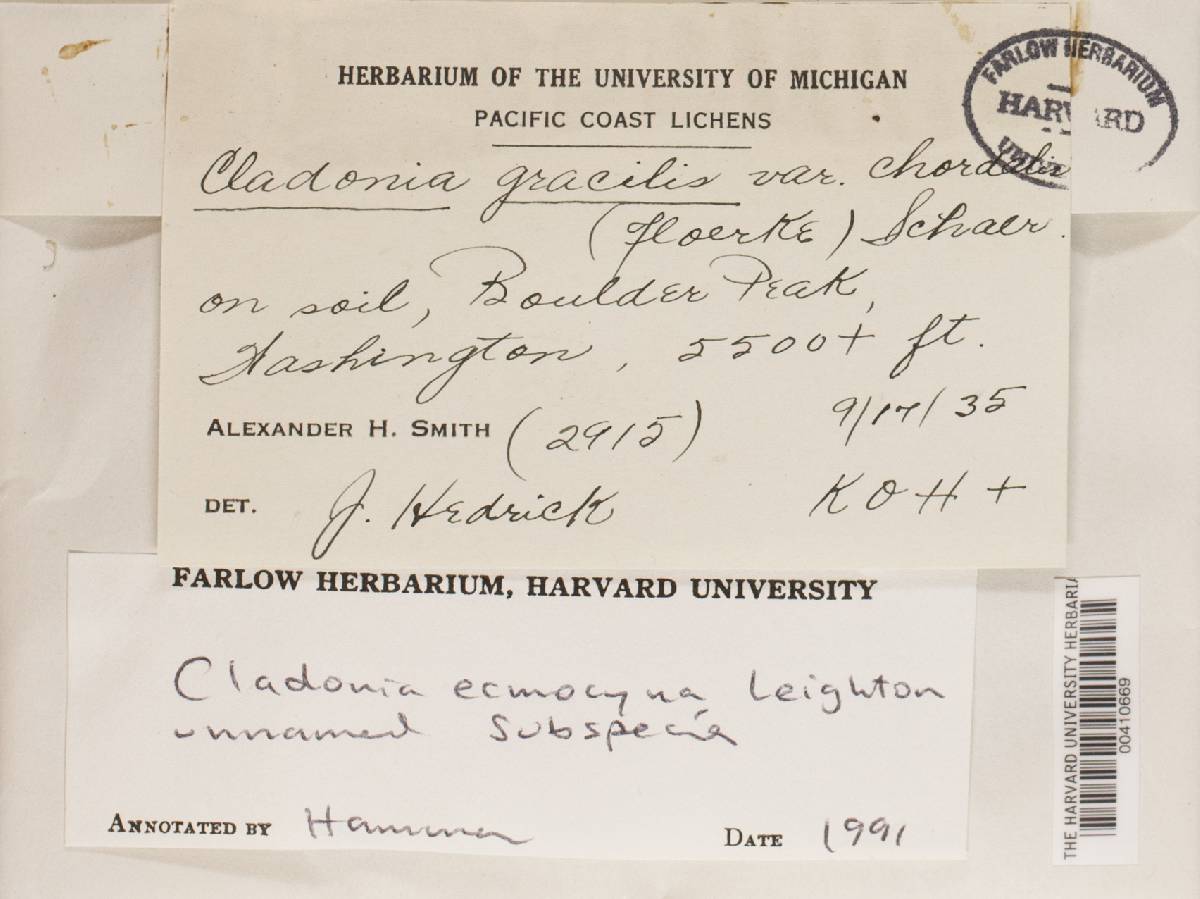 HERBARIUM OF THE UNIVERSITY OF MICHIGAN
PACIFIC COAST LICHENS
FARLOW HERBARIUM
HARVARD
Cladonia gracilis var. chordalis
(Floerke) Schaer.
on soil, Boulder Peak,
Washington, 5500+ ft.
ALEXANDER H. SMITH (2915) 9/17/35
DET. J. Hedrick KOH+
FARLOW HERBARIUM, HARVARD UNIVERSITY
Cladonia ecmocyna Leighton
unnamed Subspecie
ANNOTATED BY Hammer DATE 1991
THE HARVARD UNIVERSITY HERBARIA
00410669